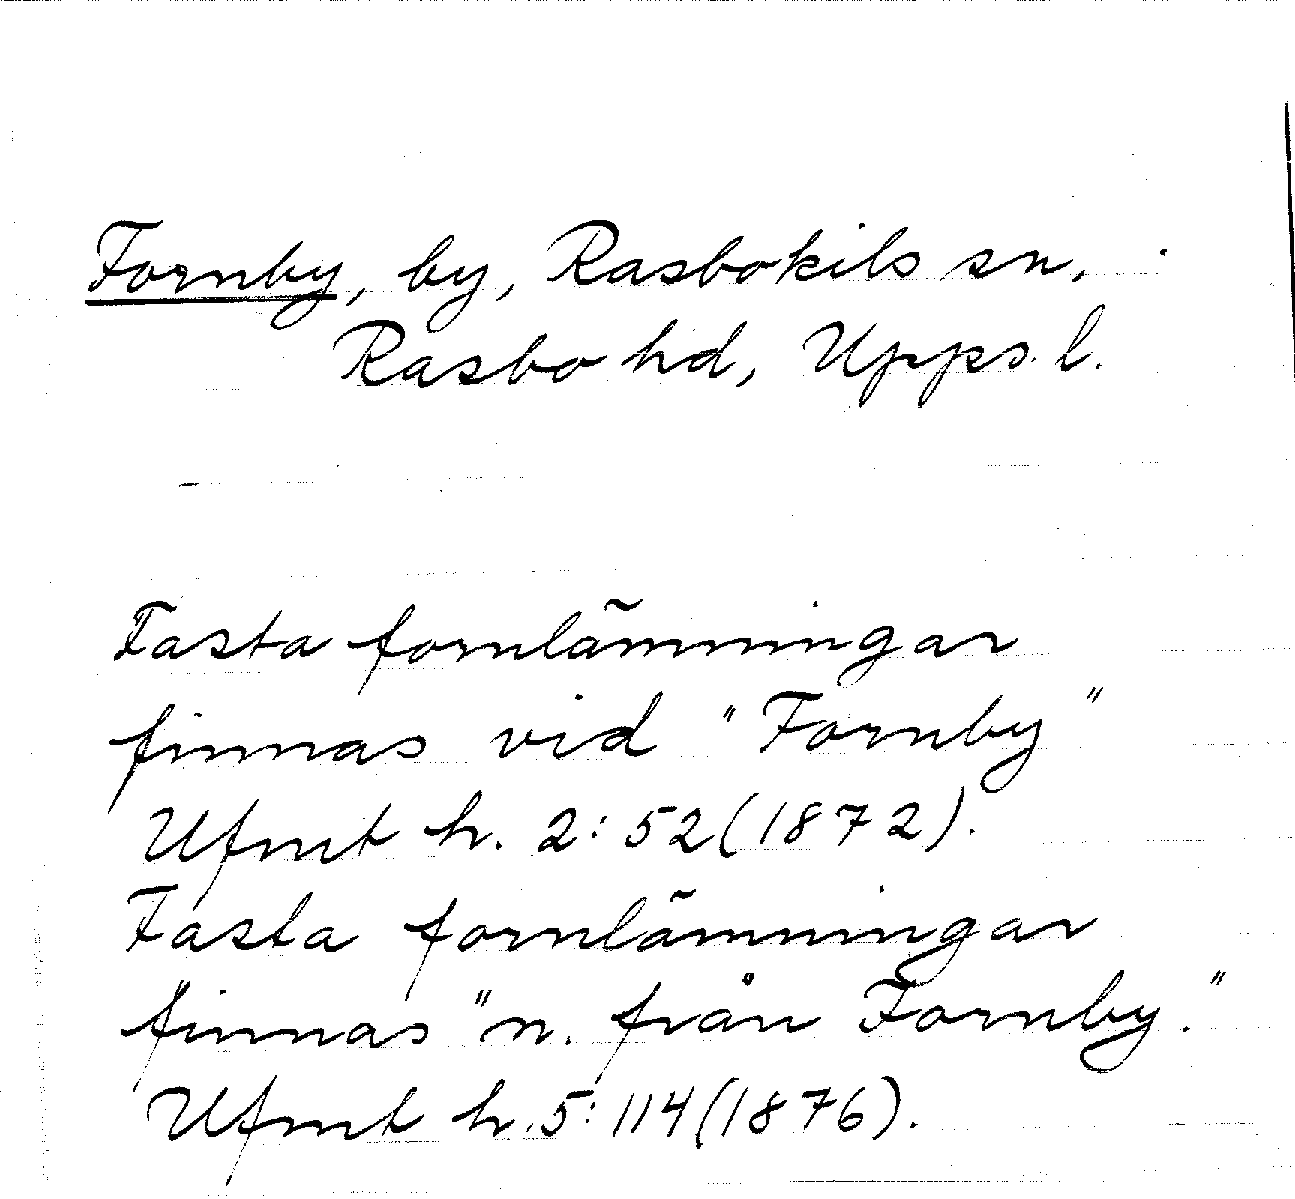 Fornby, by, Rasbokils sn,
Rasbo hd, Upps. l.
Fasta fornlämningar
finnas vid "Fornby"
Ufmt h. 2:52(1872).
Fasta fornlämningar
finnas "n. från Fornby."
Ufmt h. 5:114(1876).